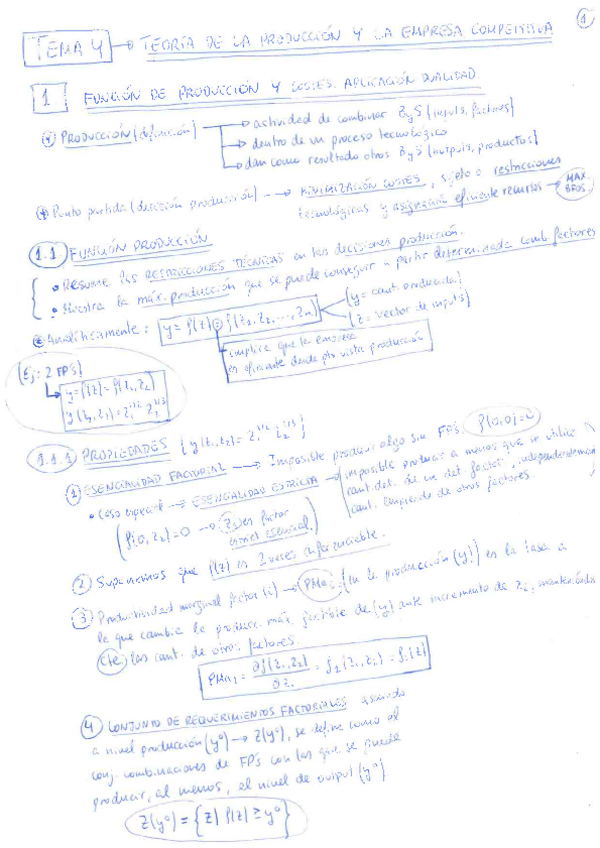 1
TEMA 4 → TEORÍA DE LA PRODUCCIÓN Y LA EMPRESA COMPETITIVA
1 FUNCIÓN DE PRODUCCIÓN Y COSTES. APLICACIÓN DUALIDAD.
PRODUCCIÓN (definición) → actividad de combinar ByS (inputs, factores)
→ dentro de un proceso tecnológico
→ dan como resultado otros ByS (outputs, productos)
Punto partida (decisión producción) → MINIMIZACIÓN COSTES, sujeto a restricciones
tecnológicas y asignación eficiente recursos → MAX. BFOS.
1.1 FUNCIÓN PRODUCCIÓN
• Resume las RESTRICCIONES TÉCNICAS en las decisiones producción.
• Muestra la máx. producción que se puede conseguir a partir determinada comb. factores
Analíticamente: y = f(z) = f(z₁, z₂, ..., zₙ) (y = cant. producida)
(z = vector de inputs)
implica que la empresa
es eficiente desde pto. vista producción
(Ej: 2 FP's)
y = f(z) = f(z₁, z₂)
y(z₁, z₂) = z₁^1/2 z₂^1/3
1.1.1 PROPIEDADES {y(z₁, z₂) = z₁^1/2 z₂^1/3}
1 ESENCIALIDAD FACTORIAL → Imposible producir algo sin FP's. f(0,0) = 0
• Caso especial → ESENCIALIDAD ESTRICTA → imposible producir a menos que se utilice
cant. det. de un det. factor, independientemente
cant. empleada de otros factores.
(f(0, z₂) = 0 → z₁ es factor
estrict. esencial.)
2 Suponemos que f(z) es 2 veces diferenciable.
3 Productividad marginal factor (i) → PMaᵢ: (en la producción (y)) es la tasa a
la que cambia la producc. máx. factible de (y) ante incremento de zᵢ, manteniendo
cte las cant. de otros factores.
PMa₁ = ∂f(z₁, z₂) / ∂z₁ = f₁(z₁, z₂) = f₁(z)
4 CONJUNTO DE REQUERIMIENTOS FACTORIALES asociado
a nivel producción (y⁰) → Z(y⁰), se define como el
conj. combinaciones de FP's con las que se puede
producir, al menos, el nivel de output (y⁰)
Z(y⁰) = {z | f(z) ≥ y⁰}